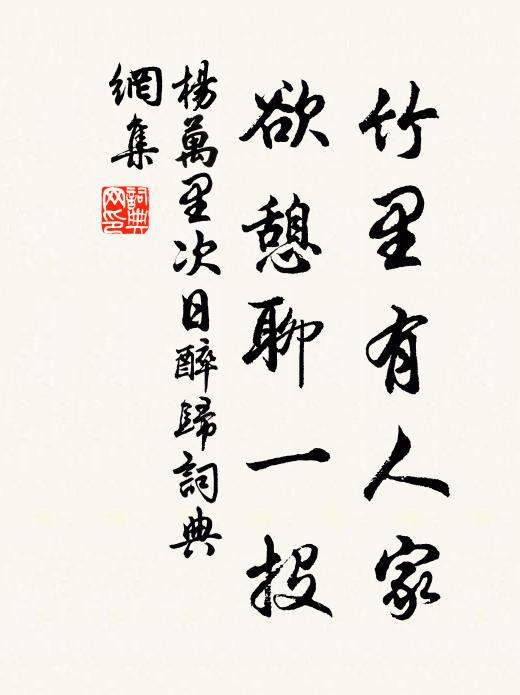 竹里有人家
欲憩聊一投
楊萬里次日醉歸詞典
網集
詞典
网印